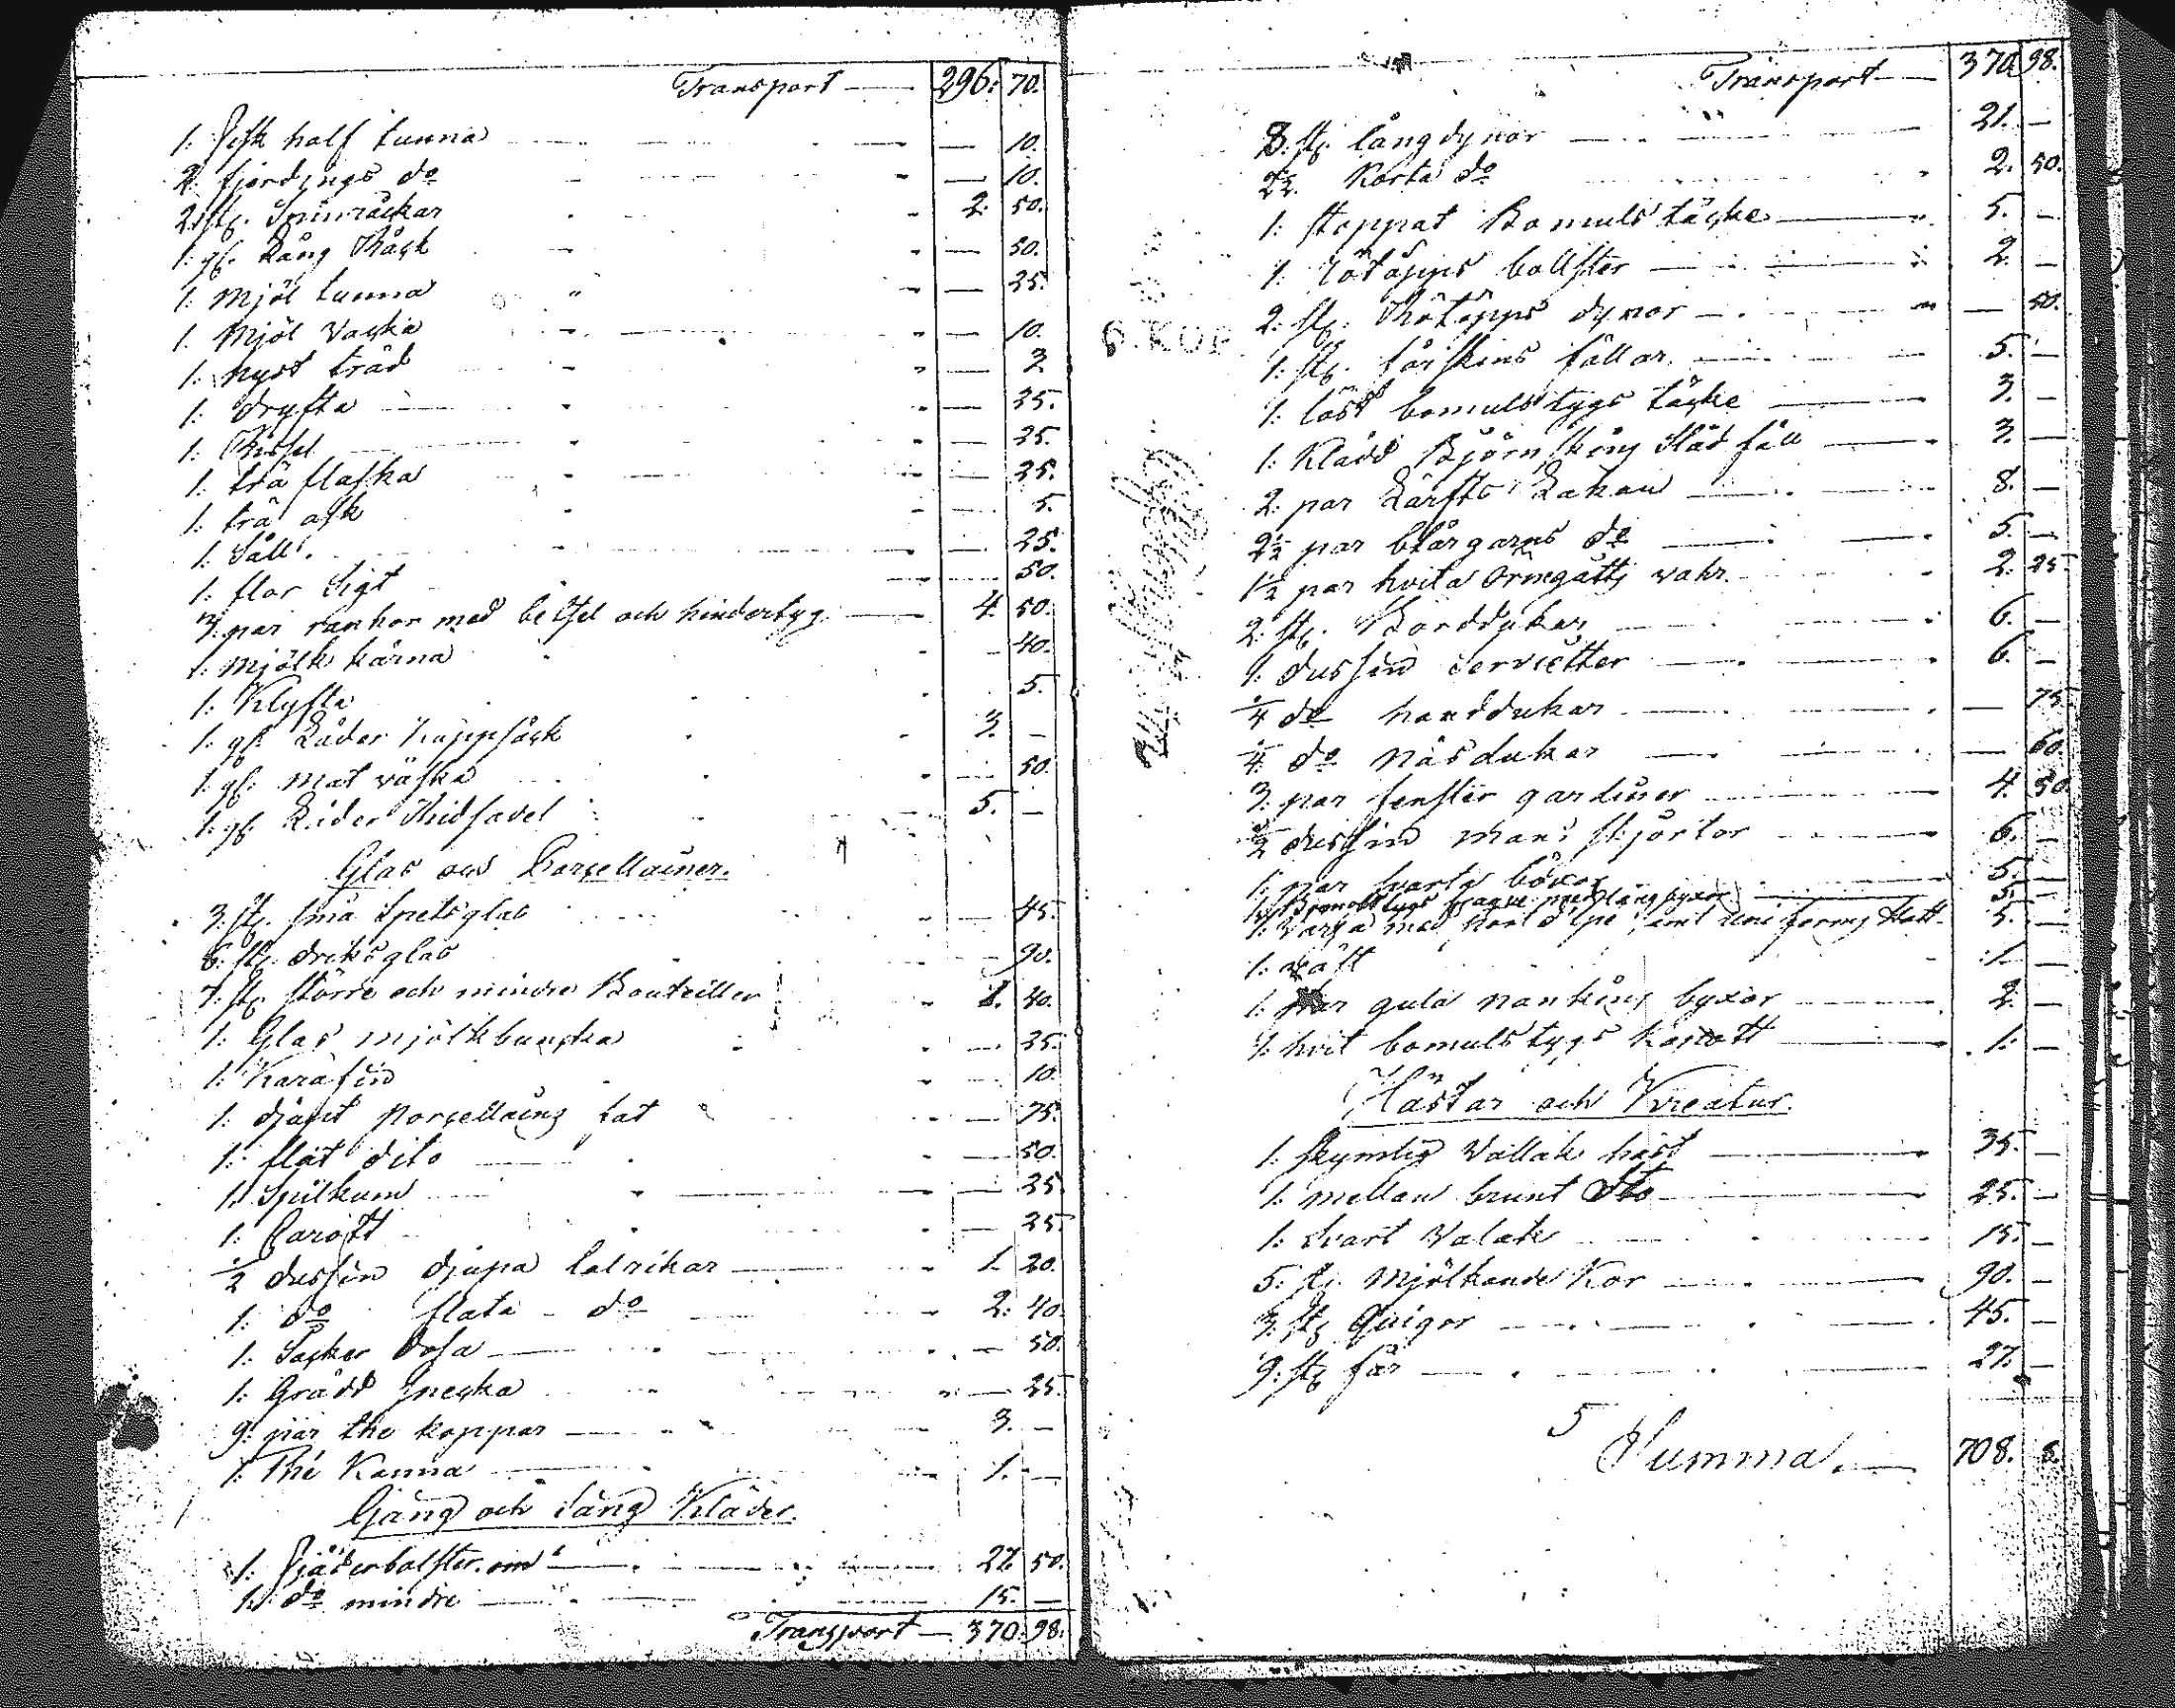 Transport — 296. 70.
1. Fisk half tunna — 10.
2. fjerdings do — 10.
2. st. Spinråckar 2. 50.
1. gl. Råck — 50.
1. Mjöl tunna — 25.
1. Mjöl Vacka — 10.
1. hyst tråd — 2
1. dryfta — 25.
1. — 25.
1. trä flaska — 25.
1. trä ask — 5.
1. Såll. — 25.
1. flor Sigt — 50.
3. par rankor med betsel och hindertyg — 4. 50.
1. Mjölk kärna — 40.
1. Klyfta 5.
1. gl. Läder Kappsäck 3. —
1. gl. mat väska — 50.
1. gl. Läder Ridsadel 5. —
Glas och Porcellainer.
3. st. små Spetsglas — 45.
6. st. driksglas — 90.
7. st. större och mindre Bouteiller 1. 40.
1. Glas mjölkbuncka — 25.
1. Karafin — 10.
1. djupt porcellains fat — 75.
1. flat dito — 50.
1. Spilkum — 25
1. Carott — 25.
1/2 dussin djupa talrikar — 1. 20.
1. do flata do — 2. 40.
1. Såcker dosa — 50.
1. Grädd snecka — 25.
9. par the koppar — 3. —
1. Thé Kanna — 1. —
Gång och säng Kläder.
1. Fjäderbolster. om — 27. 50.
1. do mindre — 15. —
Transport — 370. 98.
Transport — 370. 98.
8. st. långdynor — 21. —
2 1/2. Korta do 2. 50.
1. stoppat Bomuls täcke — 5. —
1. bolster — 2. —
2. st. dynor — 50.
1. st. fårskins fällar. — 5. —
1. löst bomulstygs täcke — 3. —
1. Klädd Björnskins Släd fäll — 3. —
2. par Lärfts Lakan — 8. —
2 1/2 par blårgarns do — 5. —
1/2 par hvita Örnegåtts vahr. 2. 25
2. st. Borddukar — 6. —
1. dussin servietter — 6. —
1/4 do handdukar — 75
1/4 do näsdukar — 60.
3. par fenster gardiner — 4. 50.
1/2 dussin mans skjortor — 6. —
1. par svarta böxor — 5. —
1. Bomulstygs långbyxor — 5. —
1. Varja med samt uniforms Hatt. 5. —
1. väst 1. —
1. par gula nankins byxor — 2. —
1. hvit bomulstygs Kapott — 1. —
Hästar och Kreatur.
1. skymlig Vallak häst — 35. —
1. mellan brunt Sto — 25. —
1. Svart Valak — 15. —
5. st. Mjölkande Kor — 90. —
3. st. Quigor — 45. —
9. st. får — 27. —
5
Summa. — 708. 8.